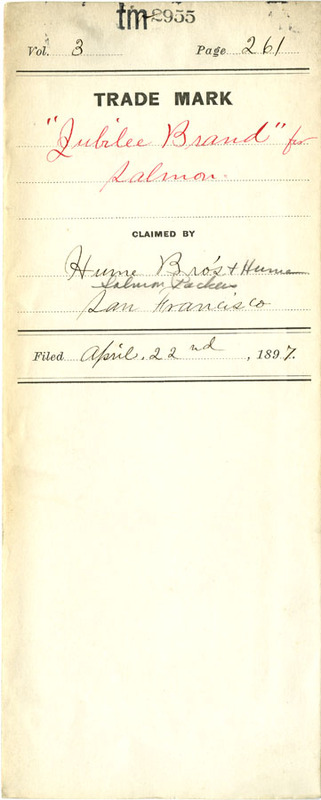 tm 2955
Vol. 3 Page 261
TRADE MARK
"Jubilee Brand" for
Salmon.
CLAIMED BY
Hume Bro's & Hume
Salmon Packers
San Francisco
Filed April. 22nd, 1897.